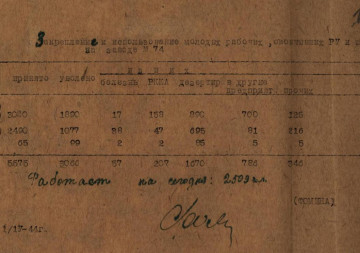 Закрепление и использование молодых рабочих, окончивших РУ и
на заводе № 74
принято уволено
из них
болезнь РККА дезертир в другие предприят. прочих
2080 1890 17 158 890 700 125
1077 38 47 695 81 216
65 99 2 2 85 5 5
5575 3066 57 207 1670 786 346
Работает на сегодня: 2509 чл.
(ФОМИНА)
1/17-44г.